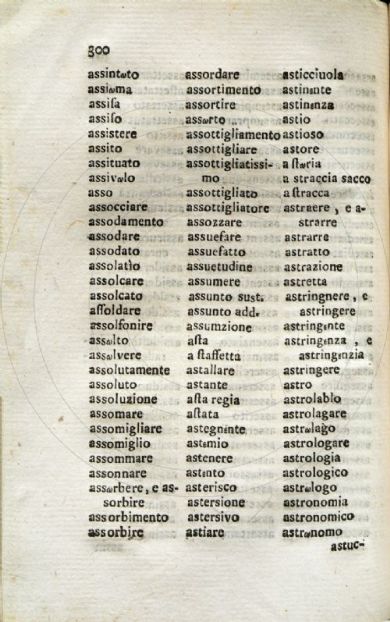 300
assintωto
assiωma
assiſa
assiſo
assistere
assito
assituato
assivωlo
asso
assocciare
assodamento
assodare
assodato
assolatìo
assolcare
assolcato
aſſoldare
assolfonire
assωlto
assωlvere
assolutamente
assoluto
assoluzione
assomare
assomigliare
assomiglio
assommare
assonnare
assωrbere, e as-
sorbire
assorbimento
assorbire
assordare
assortimento
assortire
assωrto
assottigliamento
assottigliare
assottigliatissi-
mo
assottigliato
assottigliatore
assozzare
assuefare
assuefatto
assuetudine
assumere
assunto sust.
assunto add.
assumzione
aſta
a ſtaffetta
astallare
astante
aſta regia
aſtata
astegnεnte
astεmio
astenere
astεnto
asterisco
astersione
astersivo
astiare
asticciuola
astinεnte
astinεnza
astio
astioso
astore
a ſtωria
a straccia sacco
a ſtracca
astraere, e a-
strarre
astrarre
astratto
astrazione
astretta
astringnere, e
astringere
astringεnte
astringεnza, e
astringεnzia
astringere
astro
astrolabIo
astrolagare
astrωlago
astrologare
astrologia
astrologico
astrωlogo
astronomia
astronomico
astrωnomo
astuc-